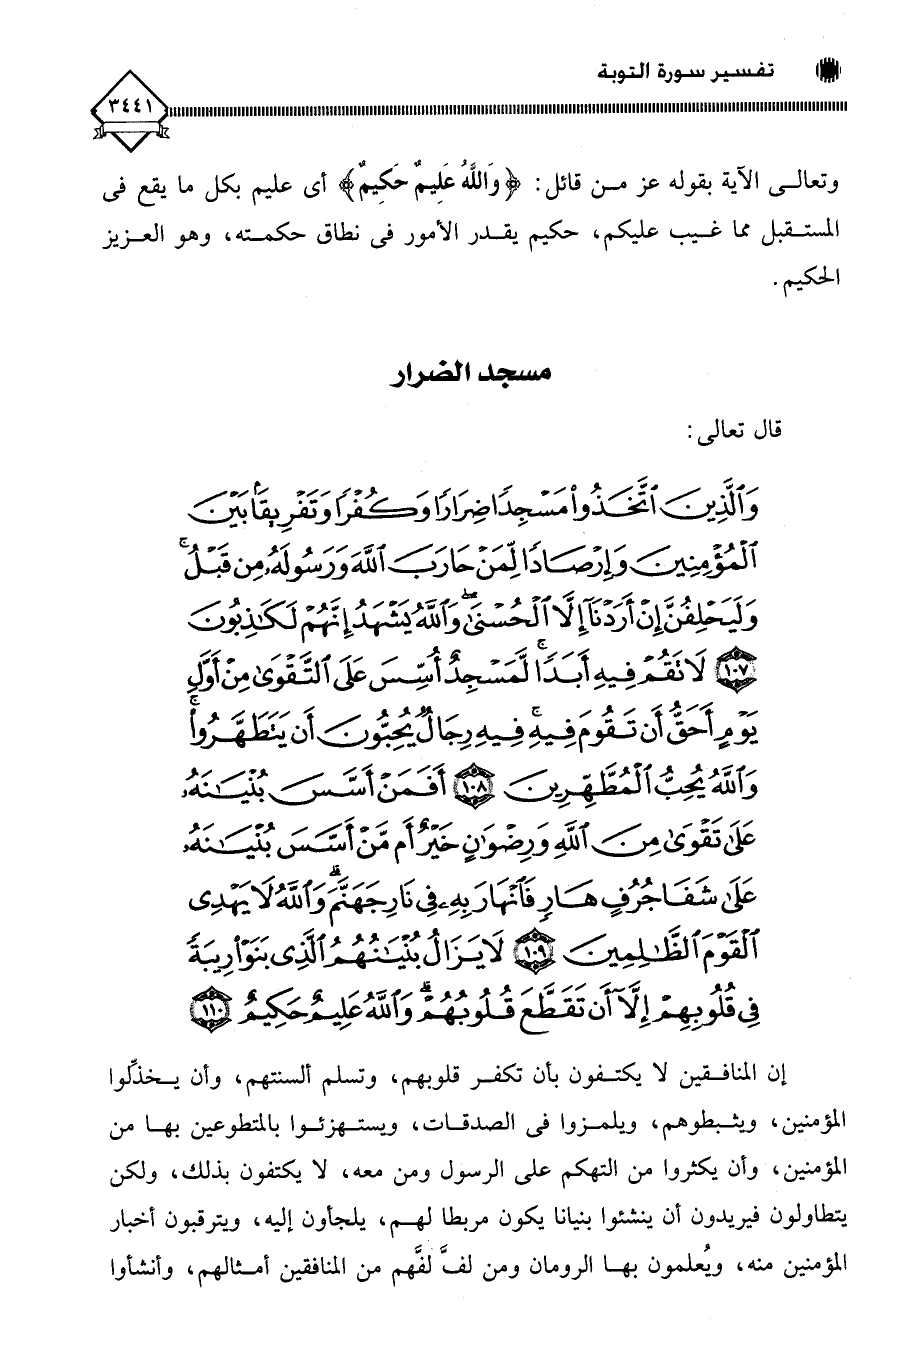 تفسير سورة التوبة
٣٤٤١
وتعالى الآية بقوله عز من قائل: ﴿وَاللَّهُ عَلِيمٌ حَكِيمٌ﴾ أى عليم بكل ما يقع فى
المستقبل مما غيب عليكم، حكيم يقدر الأمور فى نطاق حكمته، وهو العزيز
الحكيم.
مسجد الضرار
قال تعالى:
وَٱلَّذِينَ ٱتَّخَذُوا۟ مَسْجِدًا ضِرَارًا وَكُفْرًا وَتَفْرِيقًۢا بَيْنَ
ٱلْمُؤْمِنِينَ وَإِرْصَادًا لِّمَنْ حَارَبَ ٱللَّهَ وَرَسُولَهُۥ مِن قَبْلُ ۚ
وَلَيَحْلِفُنَّ إِنْ أَرَدْنَآ إِلَّا ٱلْحُسْنَىٰ ۖ وَٱللَّهُ يَشْهَدُ إِنَّهُمْ لَكَٰذِبُونَ
١٠٧ لَا تَقُمْ فِيهِ أَبَدًا ۚ لَّمَسْجِدٌ أُسِّسَ عَلَى ٱلتَّقْوَىٰ مِنْ أَوَّلِ
يَوْمٍ أَحَقُّ أَن تَقُومَ فِيهِ ۚ فِيهِ رِجَالٌ يُحِبُّونَ أَن يَتَطَهَّرُوا۟ ۚ
وَٱللَّهُ يُحِبُّ ٱلْمُطَّهِّرِينَ ١٠٨ أَفَمَنْ أَسَّسَ بُنْيَٰنَهُۥ
عَلَىٰ تَقْوَىٰ مِنَ ٱللَّهِ وَرِضْوَٰنٍ خَيْرٌ أَم مَّنْ أَسَّسَ بُنْيَٰنَهُۥ
عَلَىٰ شَفَا جُرُفٍ هَارٍ فَٱنْهَارَ بِهِۦ فِى نَارِ جَهَنَّمَ ۗ وَٱللَّهُ لَا يَهْدِى
ٱلْقَوْمَ ٱلظَّٰلِمِينَ ١٠٩ لَا يَزَالُ بُنْيَٰنُهُمُ ٱلَّذِى بَنَوْا۟ رِيبَةً
فِى قُلُوبِهِمْ إِلَّآ أَن تَقَطَّعَ قُلُوبُهُمْ ۗ وَٱللَّهُ عَلِيمٌ حَكِيمٌ ١١٠
إن المنافقين لا يكتفون بأن تكفر قلوبهم، وتسلم ألسنتهم، وأن يخذِّلوا
المؤمنين، ويثبطوهم، ويلمزوا فى الصدقات، ويستهزئوا بالمتطوعين بها من
المؤمنين، وأن يكثروا من التهكم على الرسول ومن معه، لا يكتفون بذلك، ولكن
يتطاولون فيريدون أن ينشئوا بنيانا يكون مربطا لهم، يلجأون إليه، ويترقبون أخبار
المؤمنين منه، ويُعلمون بها الرومان ومن لفَّ لفَّهم من المنافقين أمثالهم، وأنشأوا